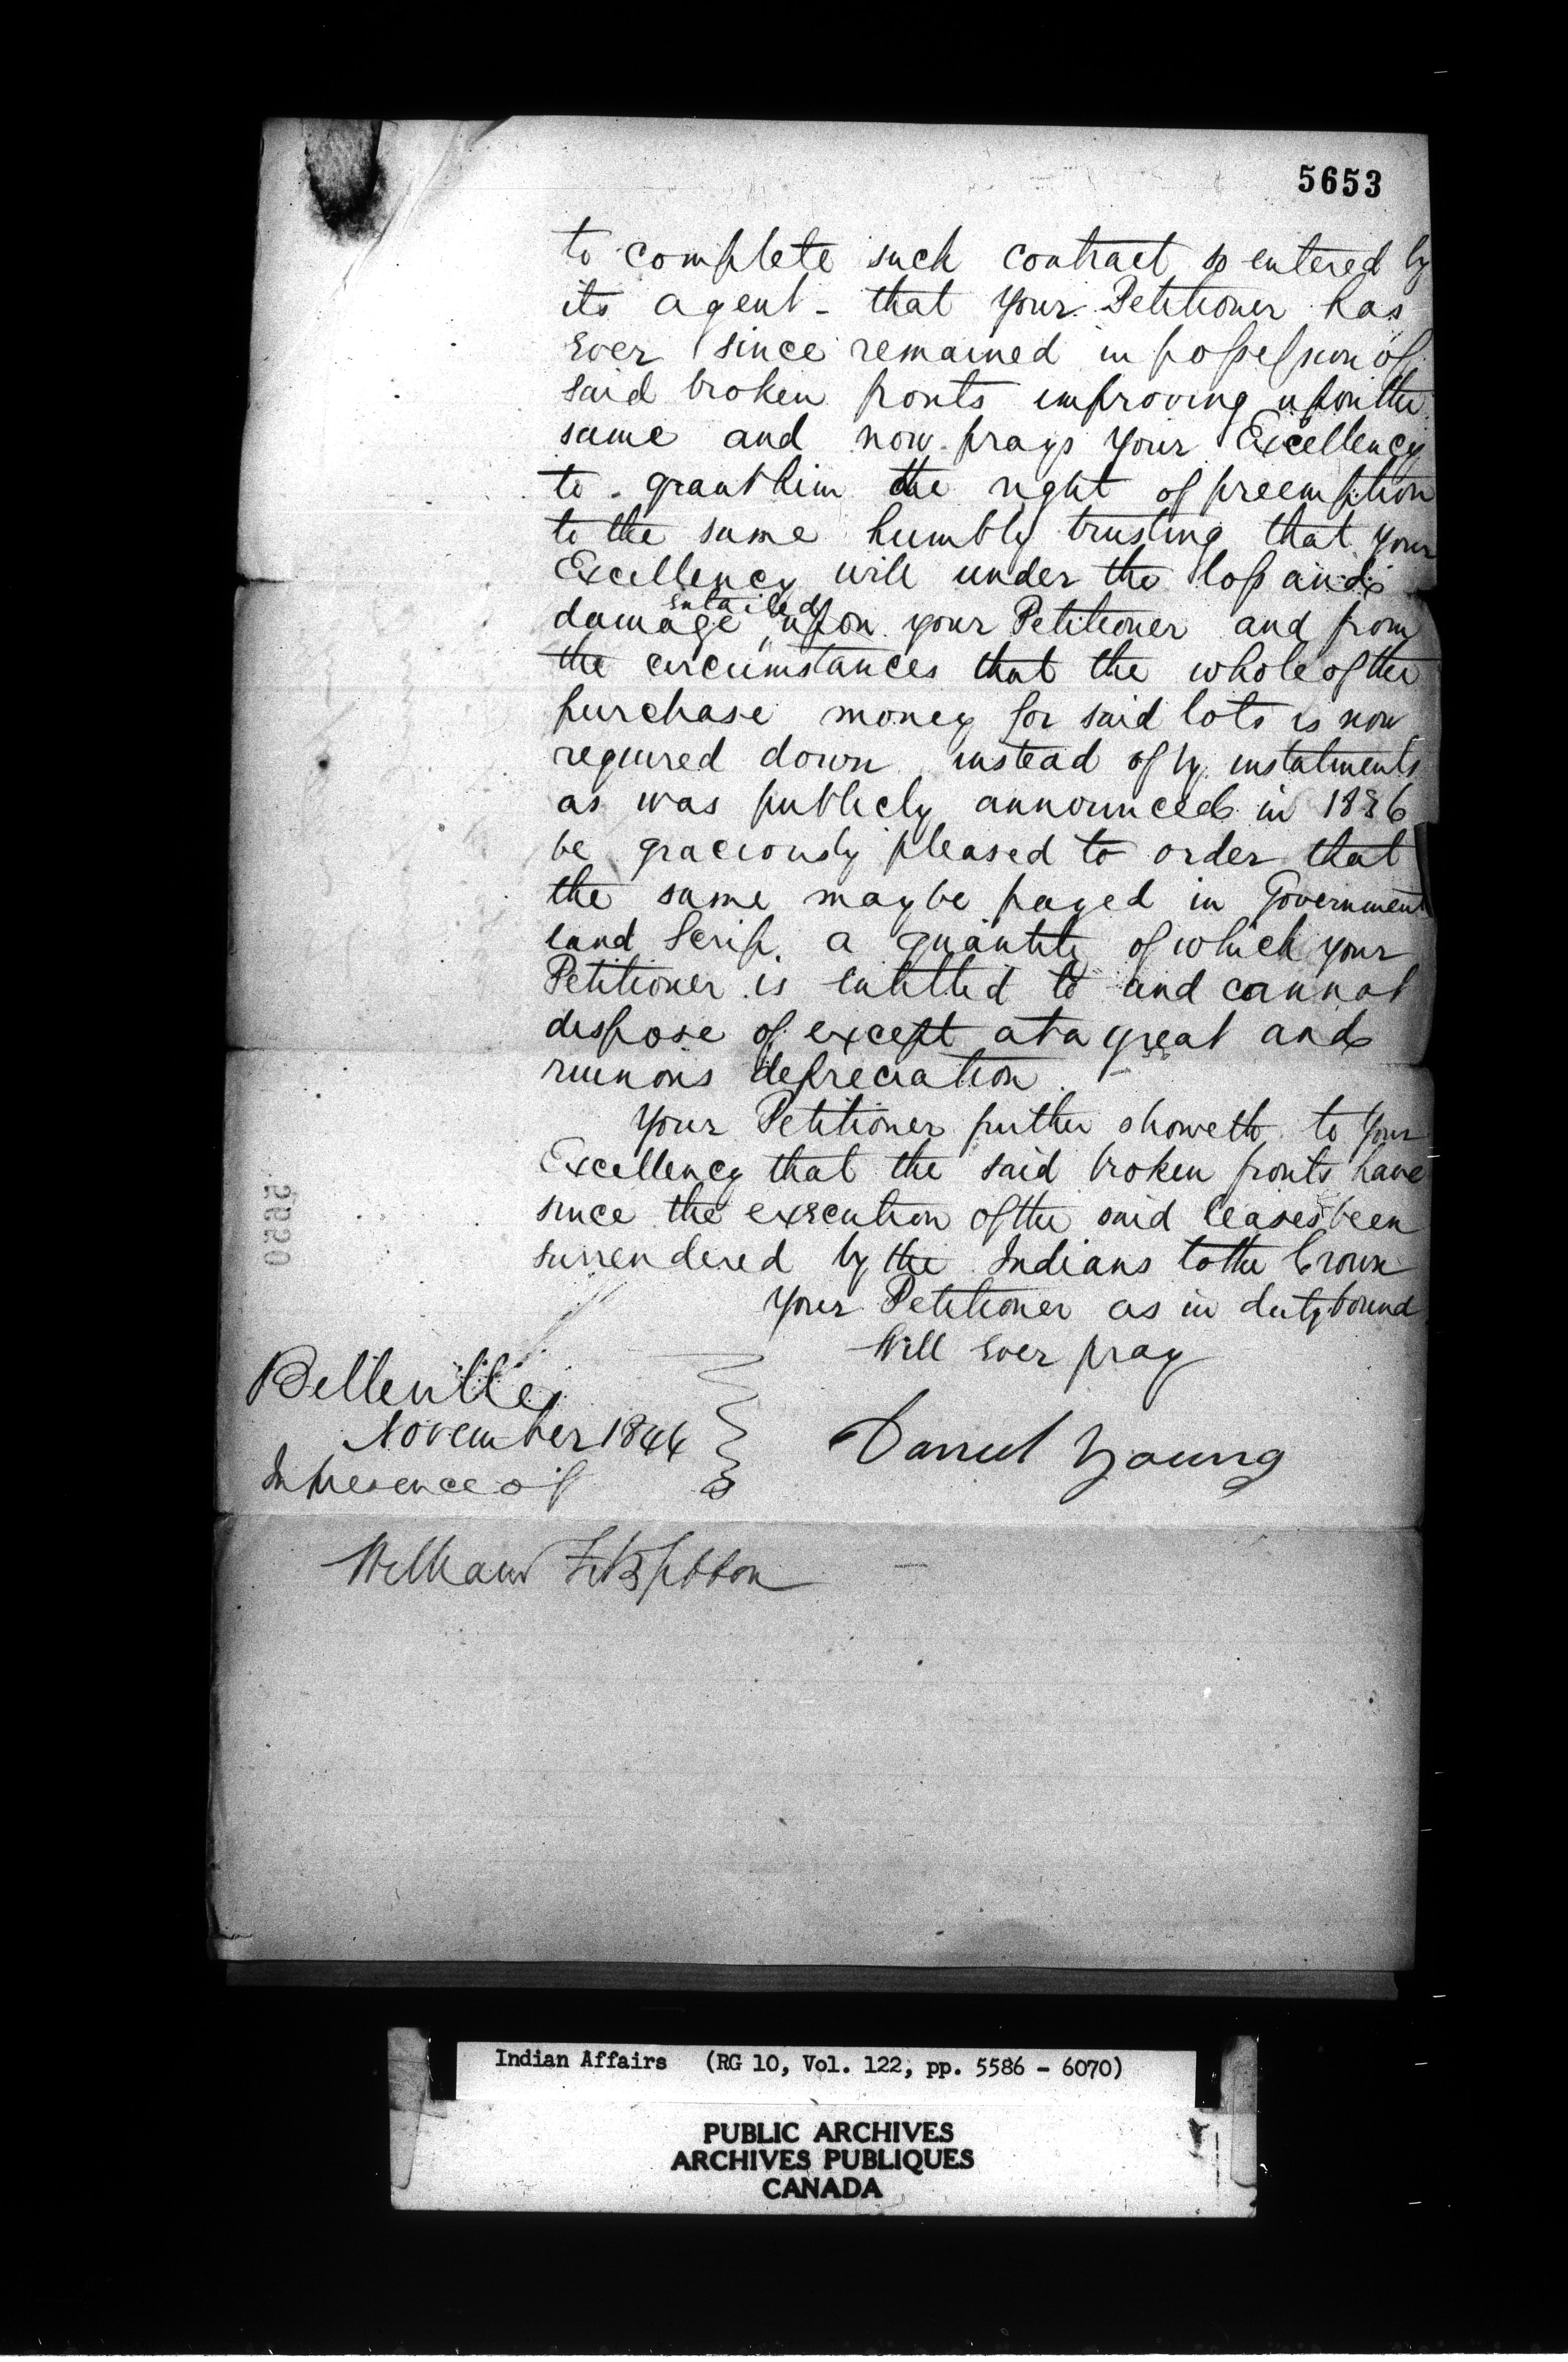 5653
to complete such contract so entered by
its agent - that your Petitioner has
ever since remained in possession of
said broken fronts improving upon the
same and now prays your Excellency
to grant him the right of preemption
to the same humbly trusting that your
Excellency will under the loss and
entailed
damage upon your Petitioner and from
the circumstances that the whole of the
purchase money for said lots is now
required down instead of by instalments
as was publicly announced in 1836
be graciously pleased to order that
the same may be payed in Government
land Scrip. a quantity of which your
Petitioner is entitled to and cannot
dispose of except at a great and
ruinous depreciation.
Your Petitioner further showeth to your
Excellency that the said broken fronts have
since the execution of the said leases been
surrendered by the Indians to the Crown
Your Petitioner as in duty bound
Will ever pray
Belleville
November 1844
In presence of
Daniel Young
William Fitzgibbon
Indian Affairs (RG 10, Vol. 122, pp. 5586 - 6070)
PUBLIC ARCHIVES
ARCHIVES PUBLIQUES
CANADA